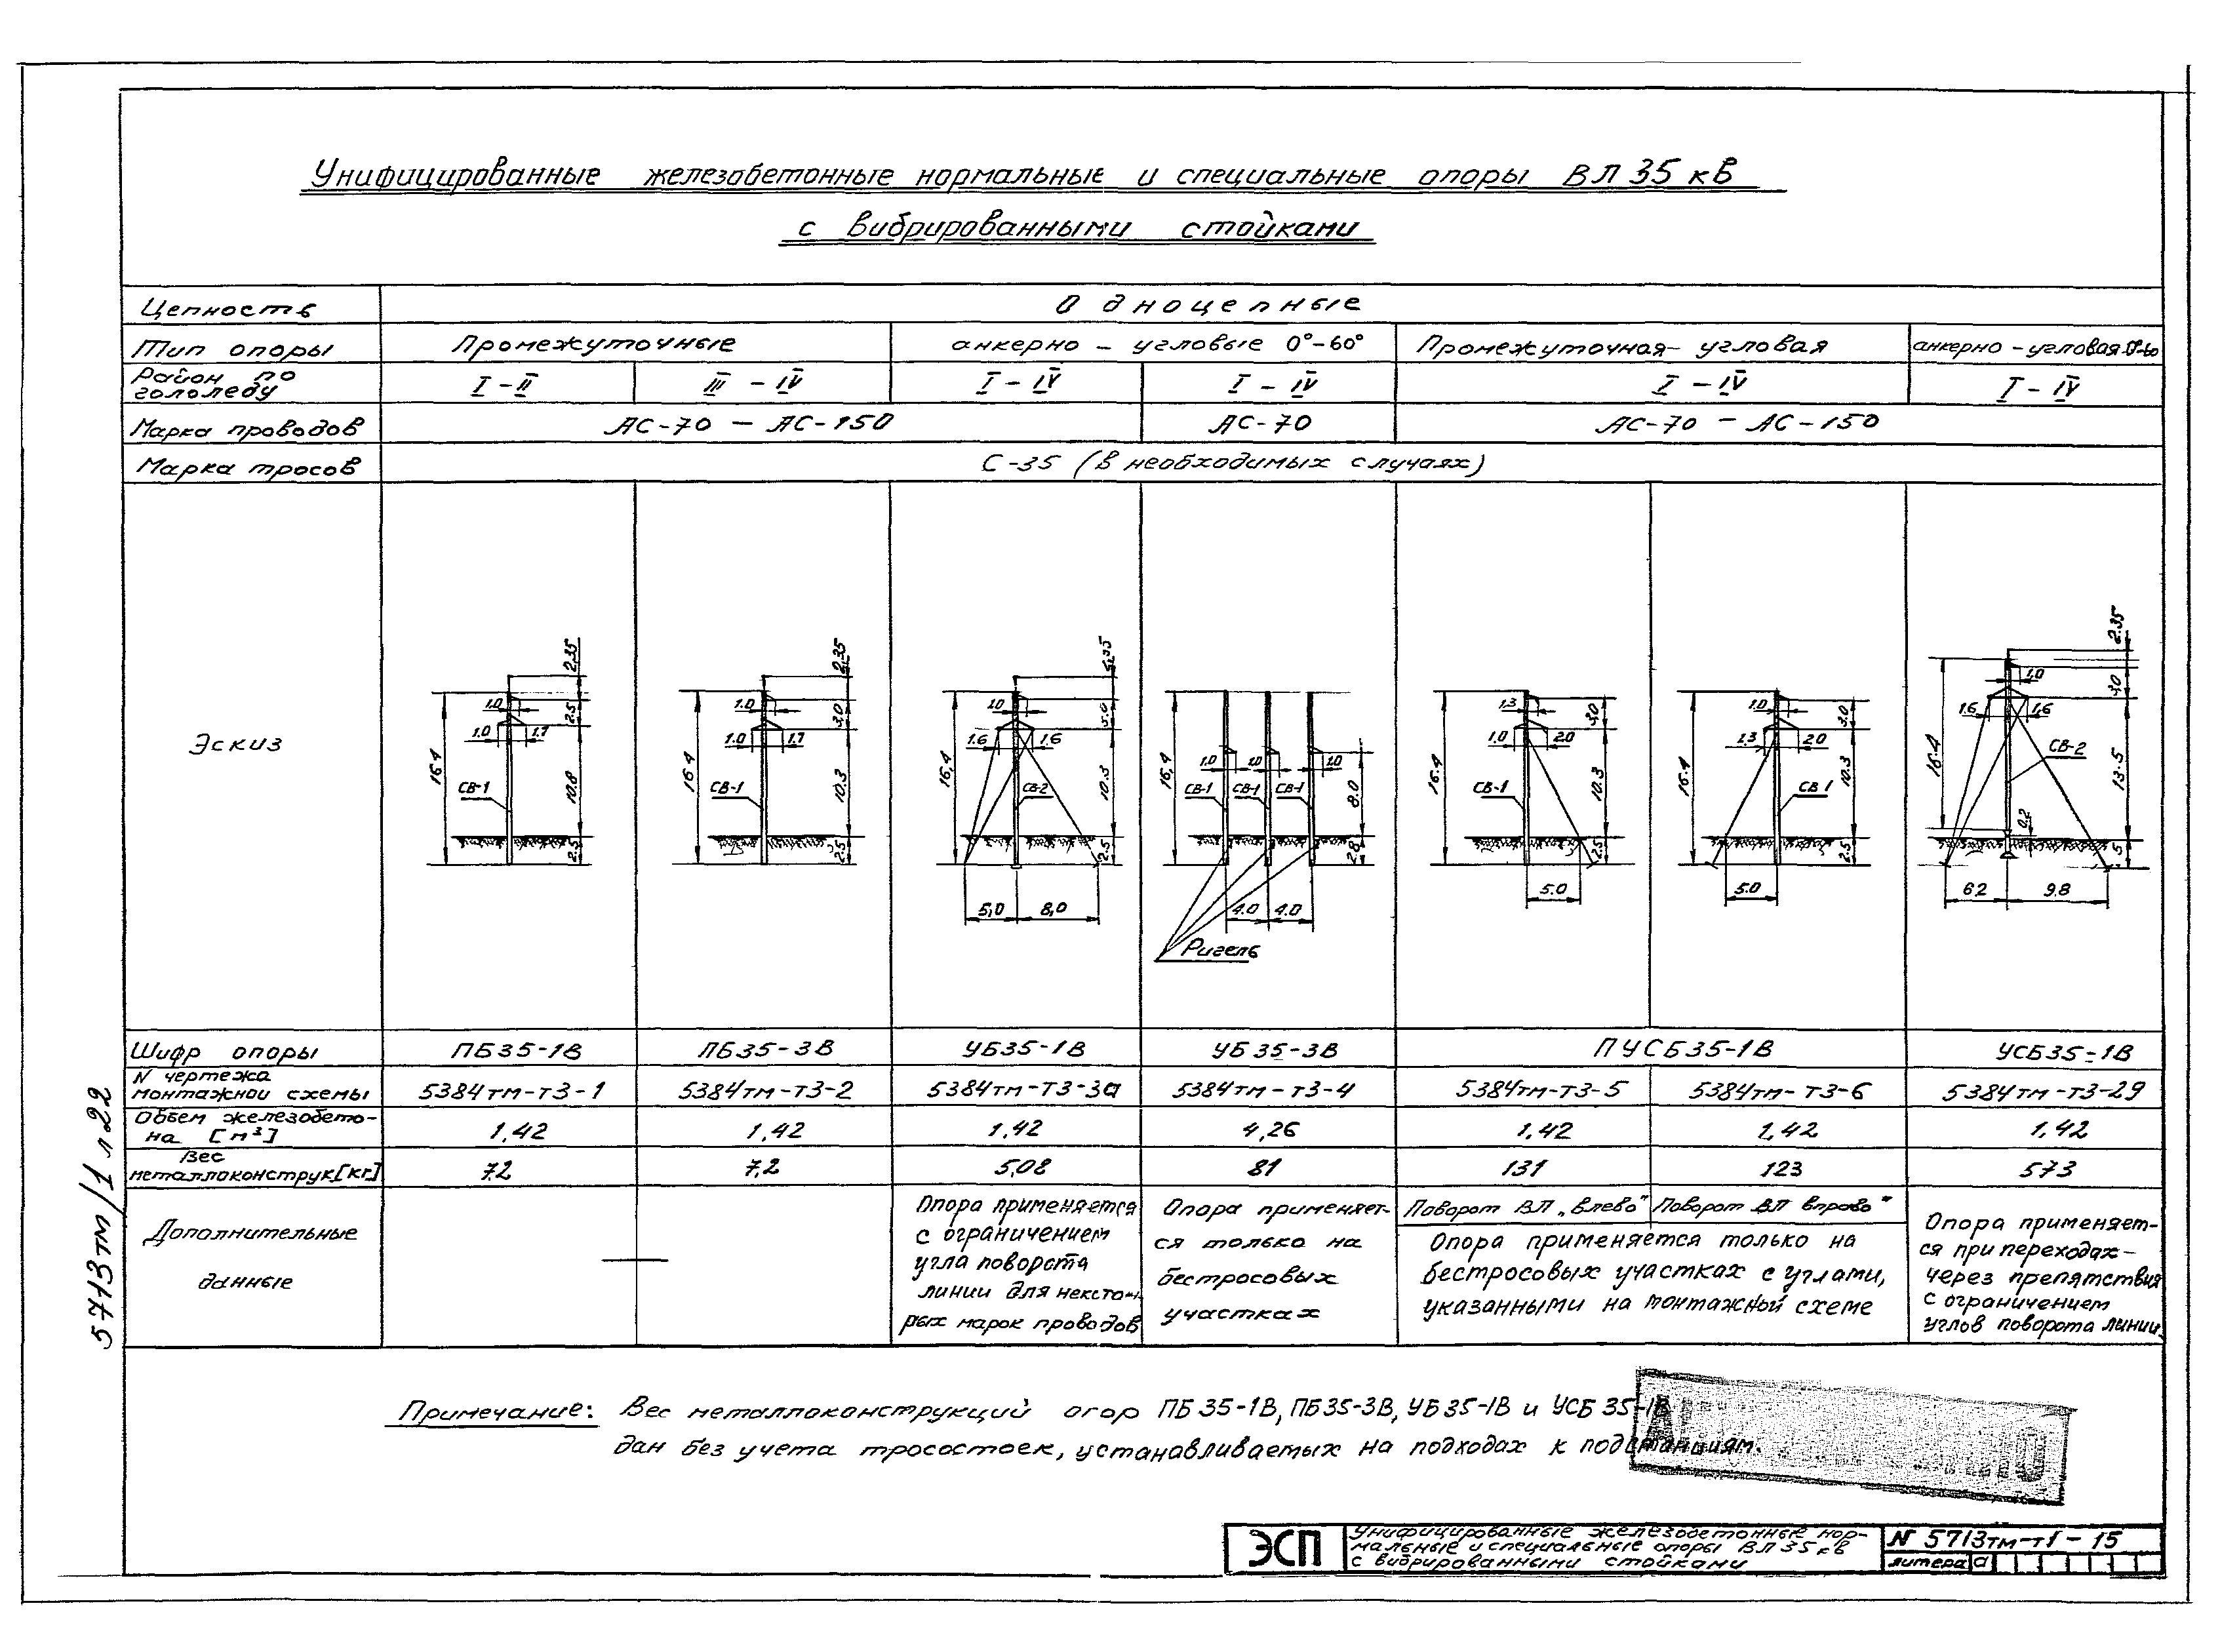 Унифицированные железобетонные нормальные и специальные опоры ВЛ 35 кВ
с вибрированными стойками
Цепность
Одноцепные
Тип опоры
Промежуточные
анкерно - угловые 0°-60°
Промежуточная - угловая
анкерно - угловая 0°-60
Район по
гололеду
I - II
III - IV
I - IV
I - IV
I - IV
I - IV
Марка проводов
АС-70 - АС-150
АС-70
АС-70 - АС-150
Марка тросов
С-35 (в необходимых случаях)
Эскиз
16.4
1.0
1.0
1.7
СВ-1
2.35
2.5
10.8
2.5
16.4
1.0
1.0
1.7
СВ-1
2.35
3.0
10.3
2.5
16,4
1.0
1.6
1.6
СВ-2
10.3
2.5
5,0
8,0
16,4
1.0
1.0
1.0
СВ-1
СВ-1
СВ-1
8.0
2.8
4.0
4.0
Ригель
16.4
1.3
1.0
2.0
СВ-1
3.0
10.3
2.5
5.0
16.4
1.0
1.3
2.0
СВ 1
3.0
10.3
2.5
5.0
16.4
1.0
1.6
1.6
СВ-2
0.2
2.35
3.0
13.5
6.2
9.8
Шифр опоры
ПБ35-1В
ПБ35-3В
УБ35-1В
УБ35-3В
ПУСБ35-1В
УСБ35-1В
N чертежа
монтажной схемы
5384тм-т3-1
5384тм-т3-2
5384тм-т3-3а
5384тм-т3-4
5384тм-т3-5
5384тм-т3-6
5384тм-т3-29
Объем железобето-
на [м³]
1,42
1,42
1,42
4,26
1,42
1,42
1,42
Вес
металлоконструк[кг]
7.2
7,2
5,08
81
131
123
573
Дополнительные
данные
Опора применяется
с ограничением
угла поворота
линии для некото-
рых марок проводов
Опора применяет-
ся только на
бестросовых
участках
Поворот ВЛ „влево"
Поворот ВЛ вправо"
Опора применяется только на
бестросовых участках с углами,
указанными на монтажной схеме
Опора применяет-
ся при переходах
через препятствия
с ограничением
углов поворота линии.
Примечание: Вес металлоконструкций опор ПБ35-1В, ПБ35-3В, УБ35-1В и УСБ35-1В
дан без учета тросостоек, устанавливаемых на подходах к подстанциям.
5713тм/1 л22
ЭСП
Унифицированные железобетонные нор-
мальные и специальные опоры ВЛ 35 кВ
с вибрированными стойками
N 5713тм-т1-15
литера а